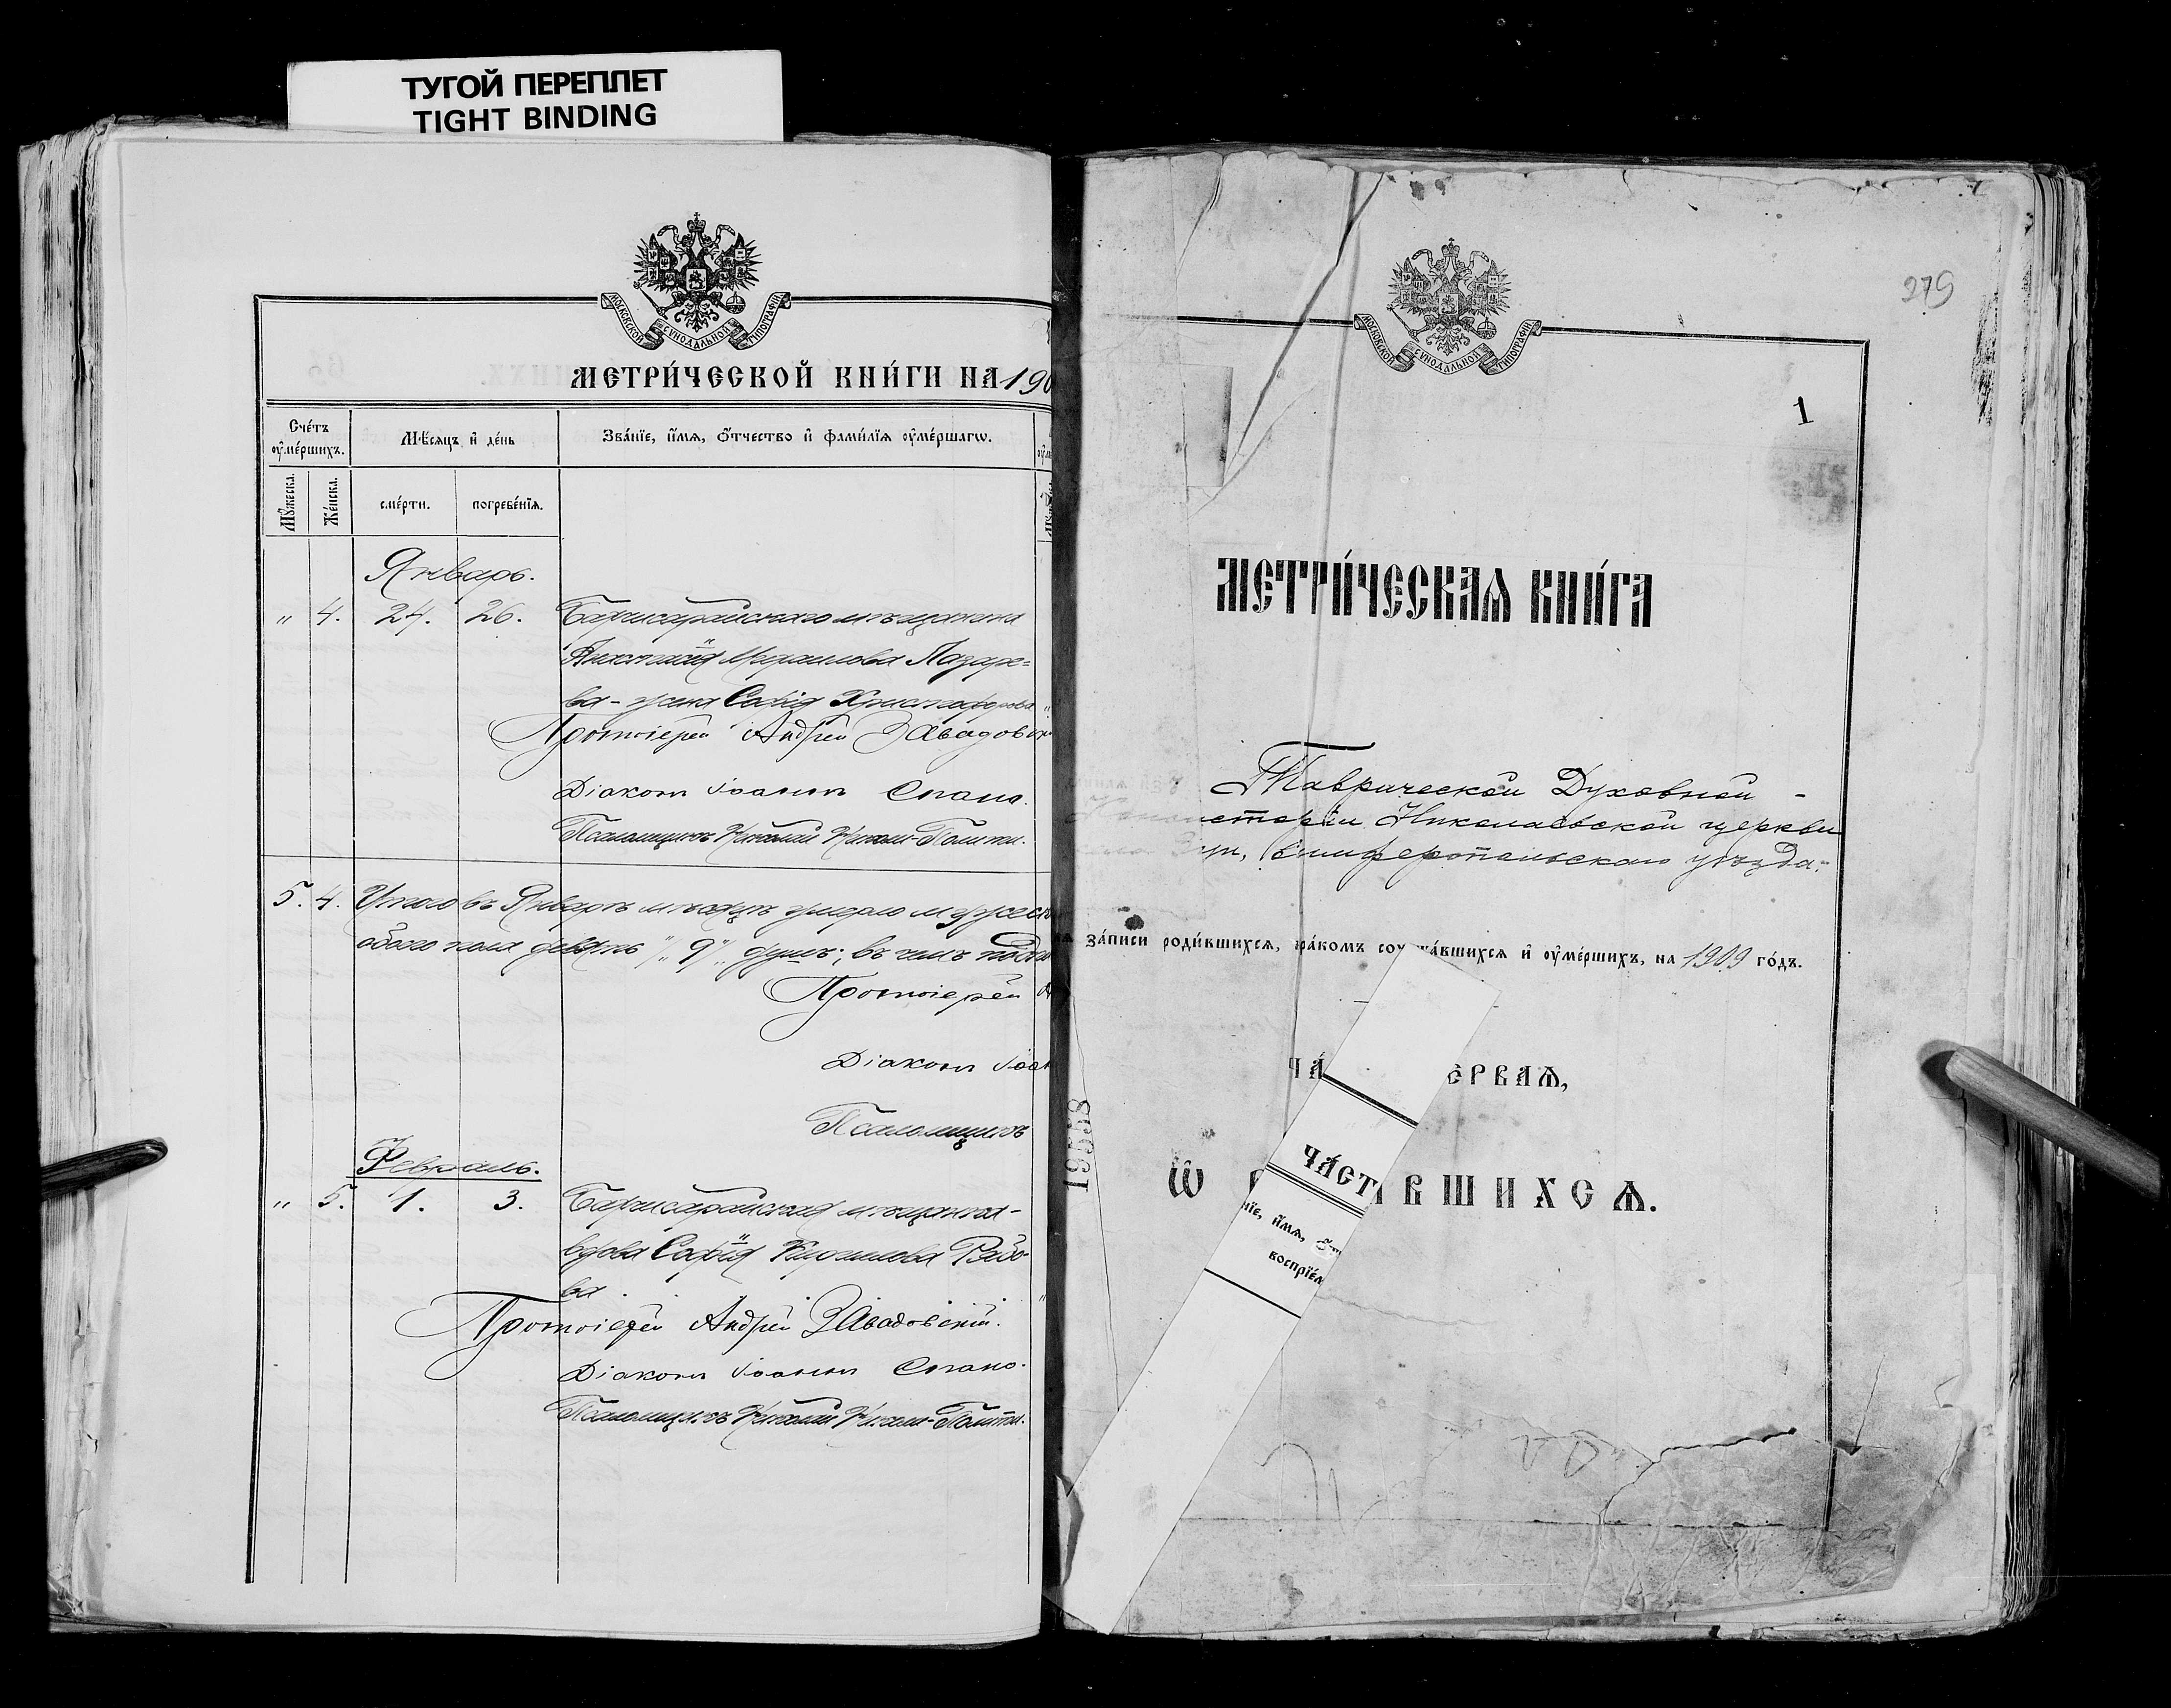 ТУГОЙ ПЕРЕПЛЕТ
TIGHT BINDING
МОСКОВСКОЙ СУНОДАЛЬНОЙ ТИПОГРАФІИ
МЕТРИ́ЧЕСКОЙ КНИ́ГИ НА 190
Сче́тъ ᲂу҆ме́ршихъ.
Мѣ́сяцъ и҆ де́нь
Зва́нїе, и҆́мѧ, ѻ҆́тчество и҆ фами́лїѧ ᲂу҆ме́ршагѡ.
Мꙋ́жеска.
Же́нска.
сме́рти.
погребе́нїѧ.
Январь.
" 4. 24. 26. Бахчисарайскаго мѣщанина
Лазаре=
ва - жена Софія Христофорова
Протоіерей Андрей Завадовск
Діаконъ Іоаннъ Спано.
Псаломщикъ Николай
5. 4. Итого въ Январѣ мѣсяцѣ умерло мужеск
обоего пола девять "9" душъ; въ чемъ
Протоіерей А
Діаконъ Іоан
Псаломщикъ
Февраль.
" 5. 1. 3. Бахчисарайская мѣщанка-
вдова Софія Кириллова Рябо-
ва.
Протоіерей Андрей Завадовскій.
Діаконъ Іоаннъ Спано.
Псаломщикъ Николай
279
МОСКОВСКОЙ СУНОДАЛЬНОЙ ТИПОГРАФІИ
1
МЕТРИ́ЧЕСКАѦ КНИ́ГА
Таврической Духовной -
систоріи Николаевской церкви
Симферопольскаго уѣзда.
за́писи роди́вшихсѧ, бра́комъ соч та́вшихсѧ и҆ ᲂу҆ме́ршихъ, на 1909 го́дъ.
ЧА́ ЕРВАѦ,
ЧА́СТ
Ѡ ВШИХСѦ.
нїе, и҆́мѧ, ѻ҆́т
воспрїе́м
19558